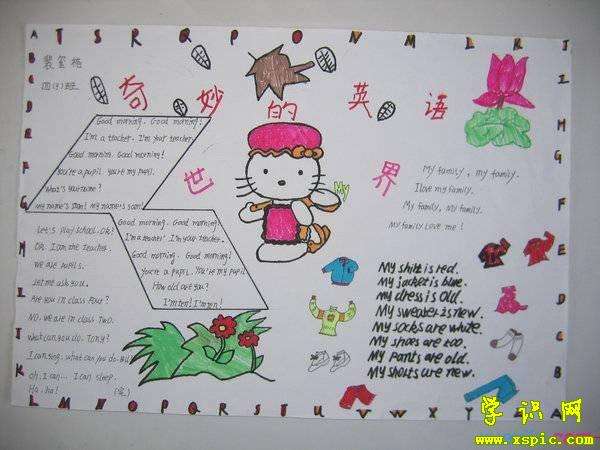 A T S R Q P O N M L K J
裴玺栋
四(3)班
奇妙的英语
世界
Good morning. Good morning!
I'm a teacher. I'm your teacher.
Good morning. Good morning!
You're a pupil. You're my pupil.
What's your name?
My name's Sam! My name's Sam!
Good morning. Good morning.
I'm a teacher. I'm your teacher.
Good morning. Good morning!
You're a pupil. You're my pupil
How old are you?
I'm ten! I'm ten!
Let's play school. Ok!
OK. I am the teacher.
We are pupils.
Let me ask you.
Are you in class Four?
NO. we are in class Two.
what can you do. Tony?
I can sing. what can you do
Oh. I can... I can sleep.
Ha. ha!
My
My family, my family.
I love my family.
My family, My family
My family Love me!
My shirt is red.
My jacket is blue.
My dress is old.
My sweater is new.
My socks are white.
My shoes are too.
My pants are old.
My shorts are new.
学识网
www.xspic.com